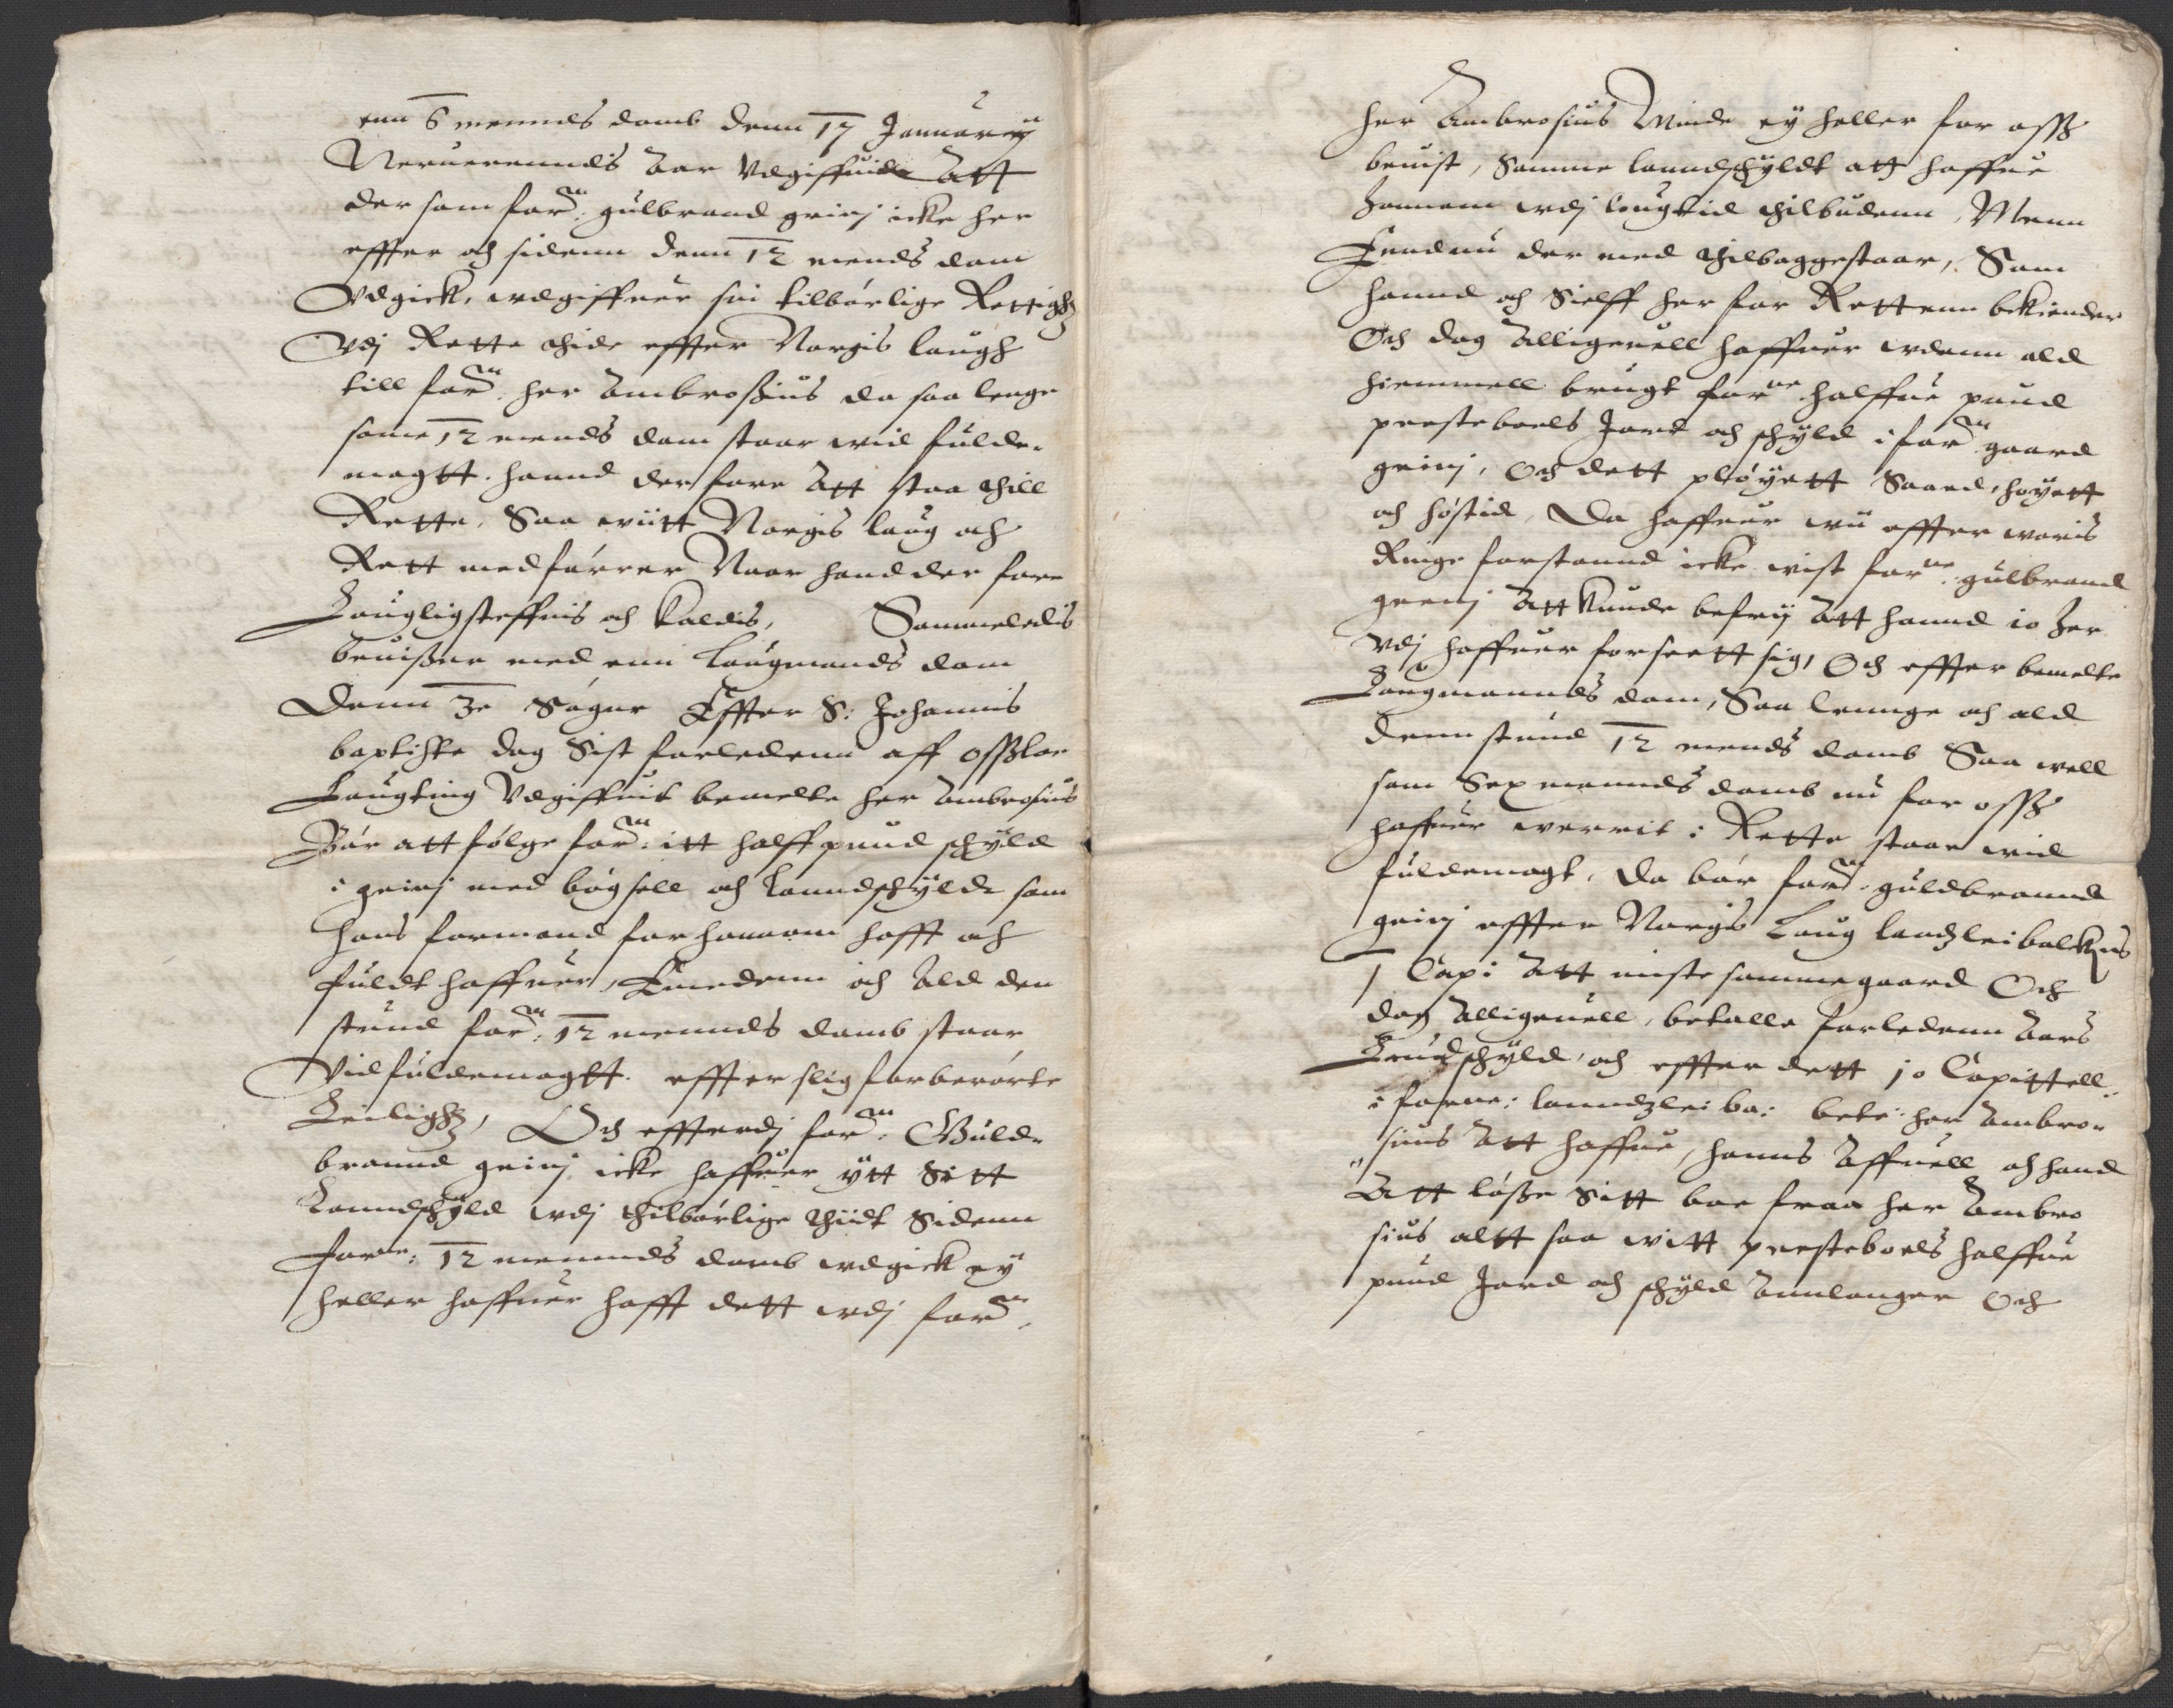 enn 6 mennds domb denn 17 Januarij
Neruerenndis Aar Vdgiffuidt Att
der som for:ne gulbrand grinj icke her
effter och sidenn denn 12 mends dom
Vdgick, wdgiffuer sin tilbørlige Rettighz
Vdj Rette thide effter Norgis laugh
till for:ne her Ambrosius da saa lenge
some 12 mends dom staar wid fulde-
magtt. hannd der fore Att staa thill
Rette, Saa wiitt Norgis laug och
Rett medførrer Naar hand der fore
Laugligsteffnis och kaldis, Sammeledis
beuisser med enn Laugmands dom
Denn 3e Søgne Effter S: Johannis
baptiste dag Sist forledenn aff Osszloe
Laugting Vdgiffuit bemelte her Ambrosius
Bør att følge for:ne itt halff pund schyld
i grinj med bøgsell och Lanndschyld som
hans formand for hannom hafft och
fuldt haffuer, Emedenn och Ald den
stund for:ne 12 mennds domb staar
Vid fuldemagtt. effter slig forberørte
Leilighz, Och effterdj for:ne Guld-
brannd grinj icke haffuer ytt Sitt
Lanndschyld wdj thilbørlige thiidt Sidenn
for:ne 12 mennds domb wdgick ey
heller haffuer hafft dett wdj for:ne
her Ambrosius Minde ey heller for ossz
beuist, Samme lanndschyldt att haffue
hannem wdj laugtid thilbudenn, Menn
Enndnu der med thilbaggestaar, Som
hannd och Sielff her for Rettenn bekiender
Och dog Alligeuell haffuer wdenn ald
hiemmell brugt for:ne halffue pund
presteboels Jord och schyld i for:ne gaard
grinj, Och dett pløyett Saaed, høyett
och høstid, Da haffuer wii effter woris
Ringe forstannd icke wist for:ne gulbrand
grinj Att kunde befrij Att hannd io her
Vdj haffuer forseett sig, Och effter bemelte
Laugmannds dom, Saa lennge och ald
denn stund 12 mends domb Saa well
som Sex mennds domb nu for ossz
haffuer werrit i Rette staar wid
fuldemagt, da bør for:ne guldbrannd
grinj effter Norgis Laug landzleibolkens
1 Cap: Att miste samme gaard Och
dog Alligeuell, betalle forledenn Aars
Lanndschyld, och effter dett 10 Capittell
i forne: lanndzlei bo: bete: her Ambro-
sius Att haffue, hanns Affuell och hand
Att løsse Sitt boe fraa her Ambro
sius altt saa witt presteboels halffue
pund Jord och schyld Annlanger Och